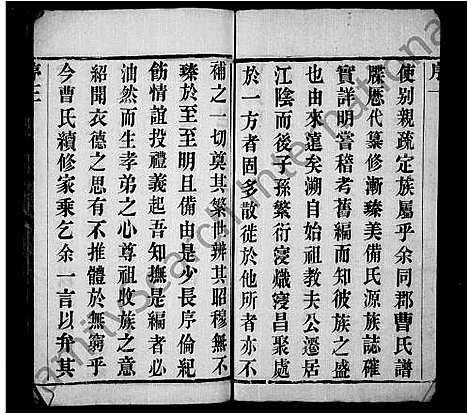 序
使别親疏定族屬乎余同郡曹氏譜
牒歷代纂修漸臻美備氏源族誌確
實詳明嘗稽考舊編而知彼族之盛
也由來遠矣溯自始祖教夫公遷居
江陰而後子孫繁衍寖熾寖昌聚處
於一方者固多散徙於他所者亦不
補之一切奠其繁世辨其昭穆無不
臻於至至明且備由是少長序倫紀
飭情誼投禮義起吾知撫是編者必
油然而生孝弟之心尊祖收族之意
紹聞衣德之思有不推體於無窮乎
今曹氏續修家乘乞余一言以弁其
序三
familysearch international